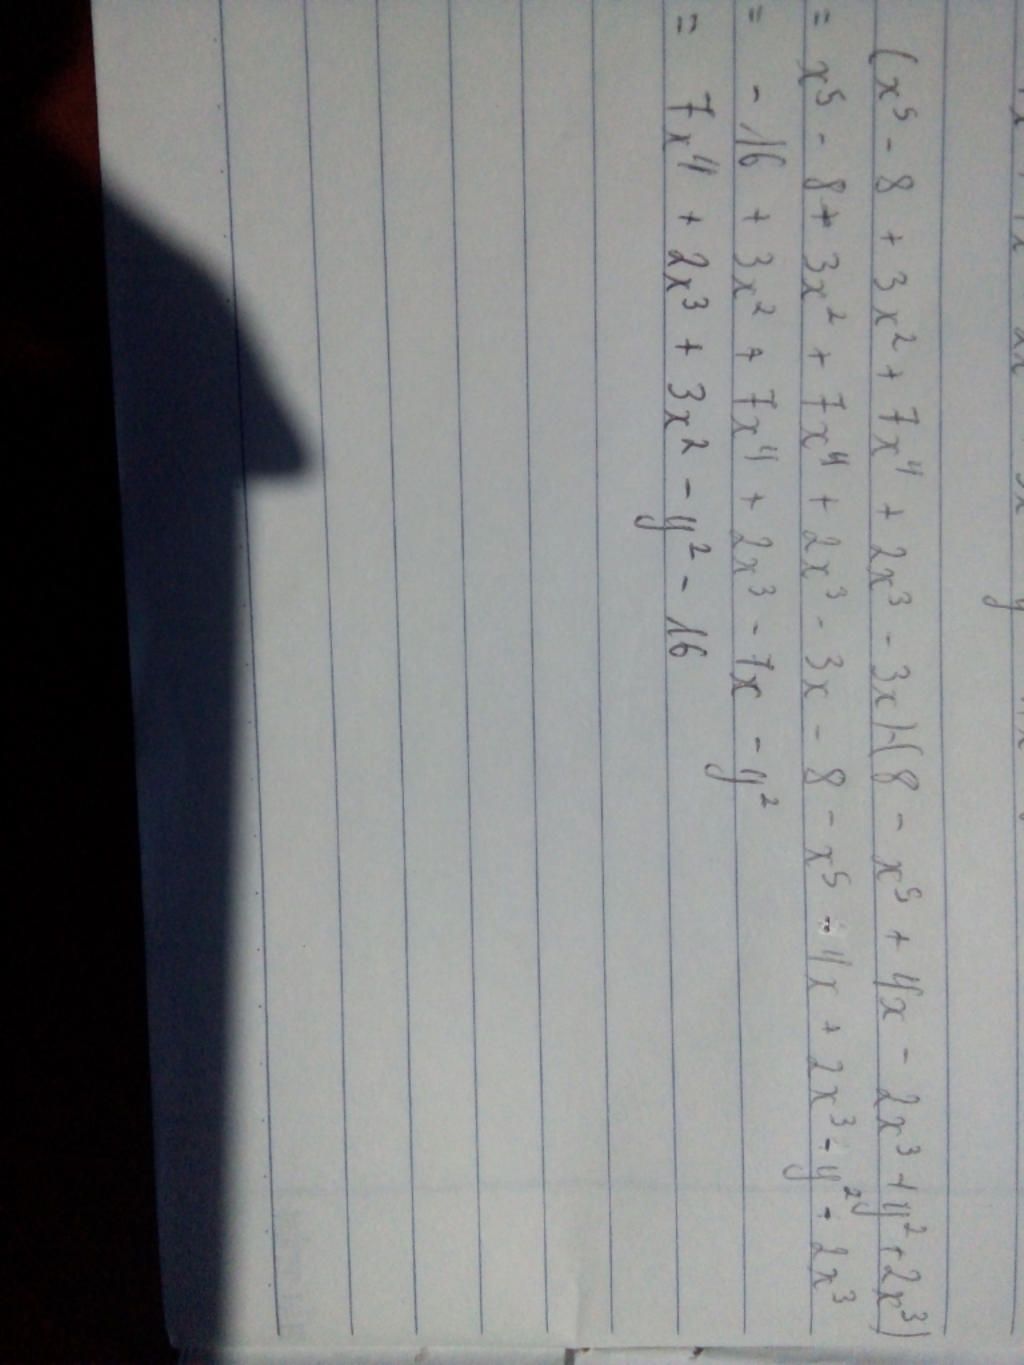 (x⁵ - 8 + 3x² + 7x⁴ + 2x³ - 3x)-(8 - x⁵ + 4x - 2x³ + y² + 2x³)
= x⁵ - 8 + 3x² + 7x⁴ + 2x³ - 3x - 8 - x⁵ - 4x + 2x³ - y² - 2x³
= - 16 + 3x² + 7x⁴ + 2x³ - 7x - y²
= 7x⁴ + 2x³ + 3x² - y² - 16